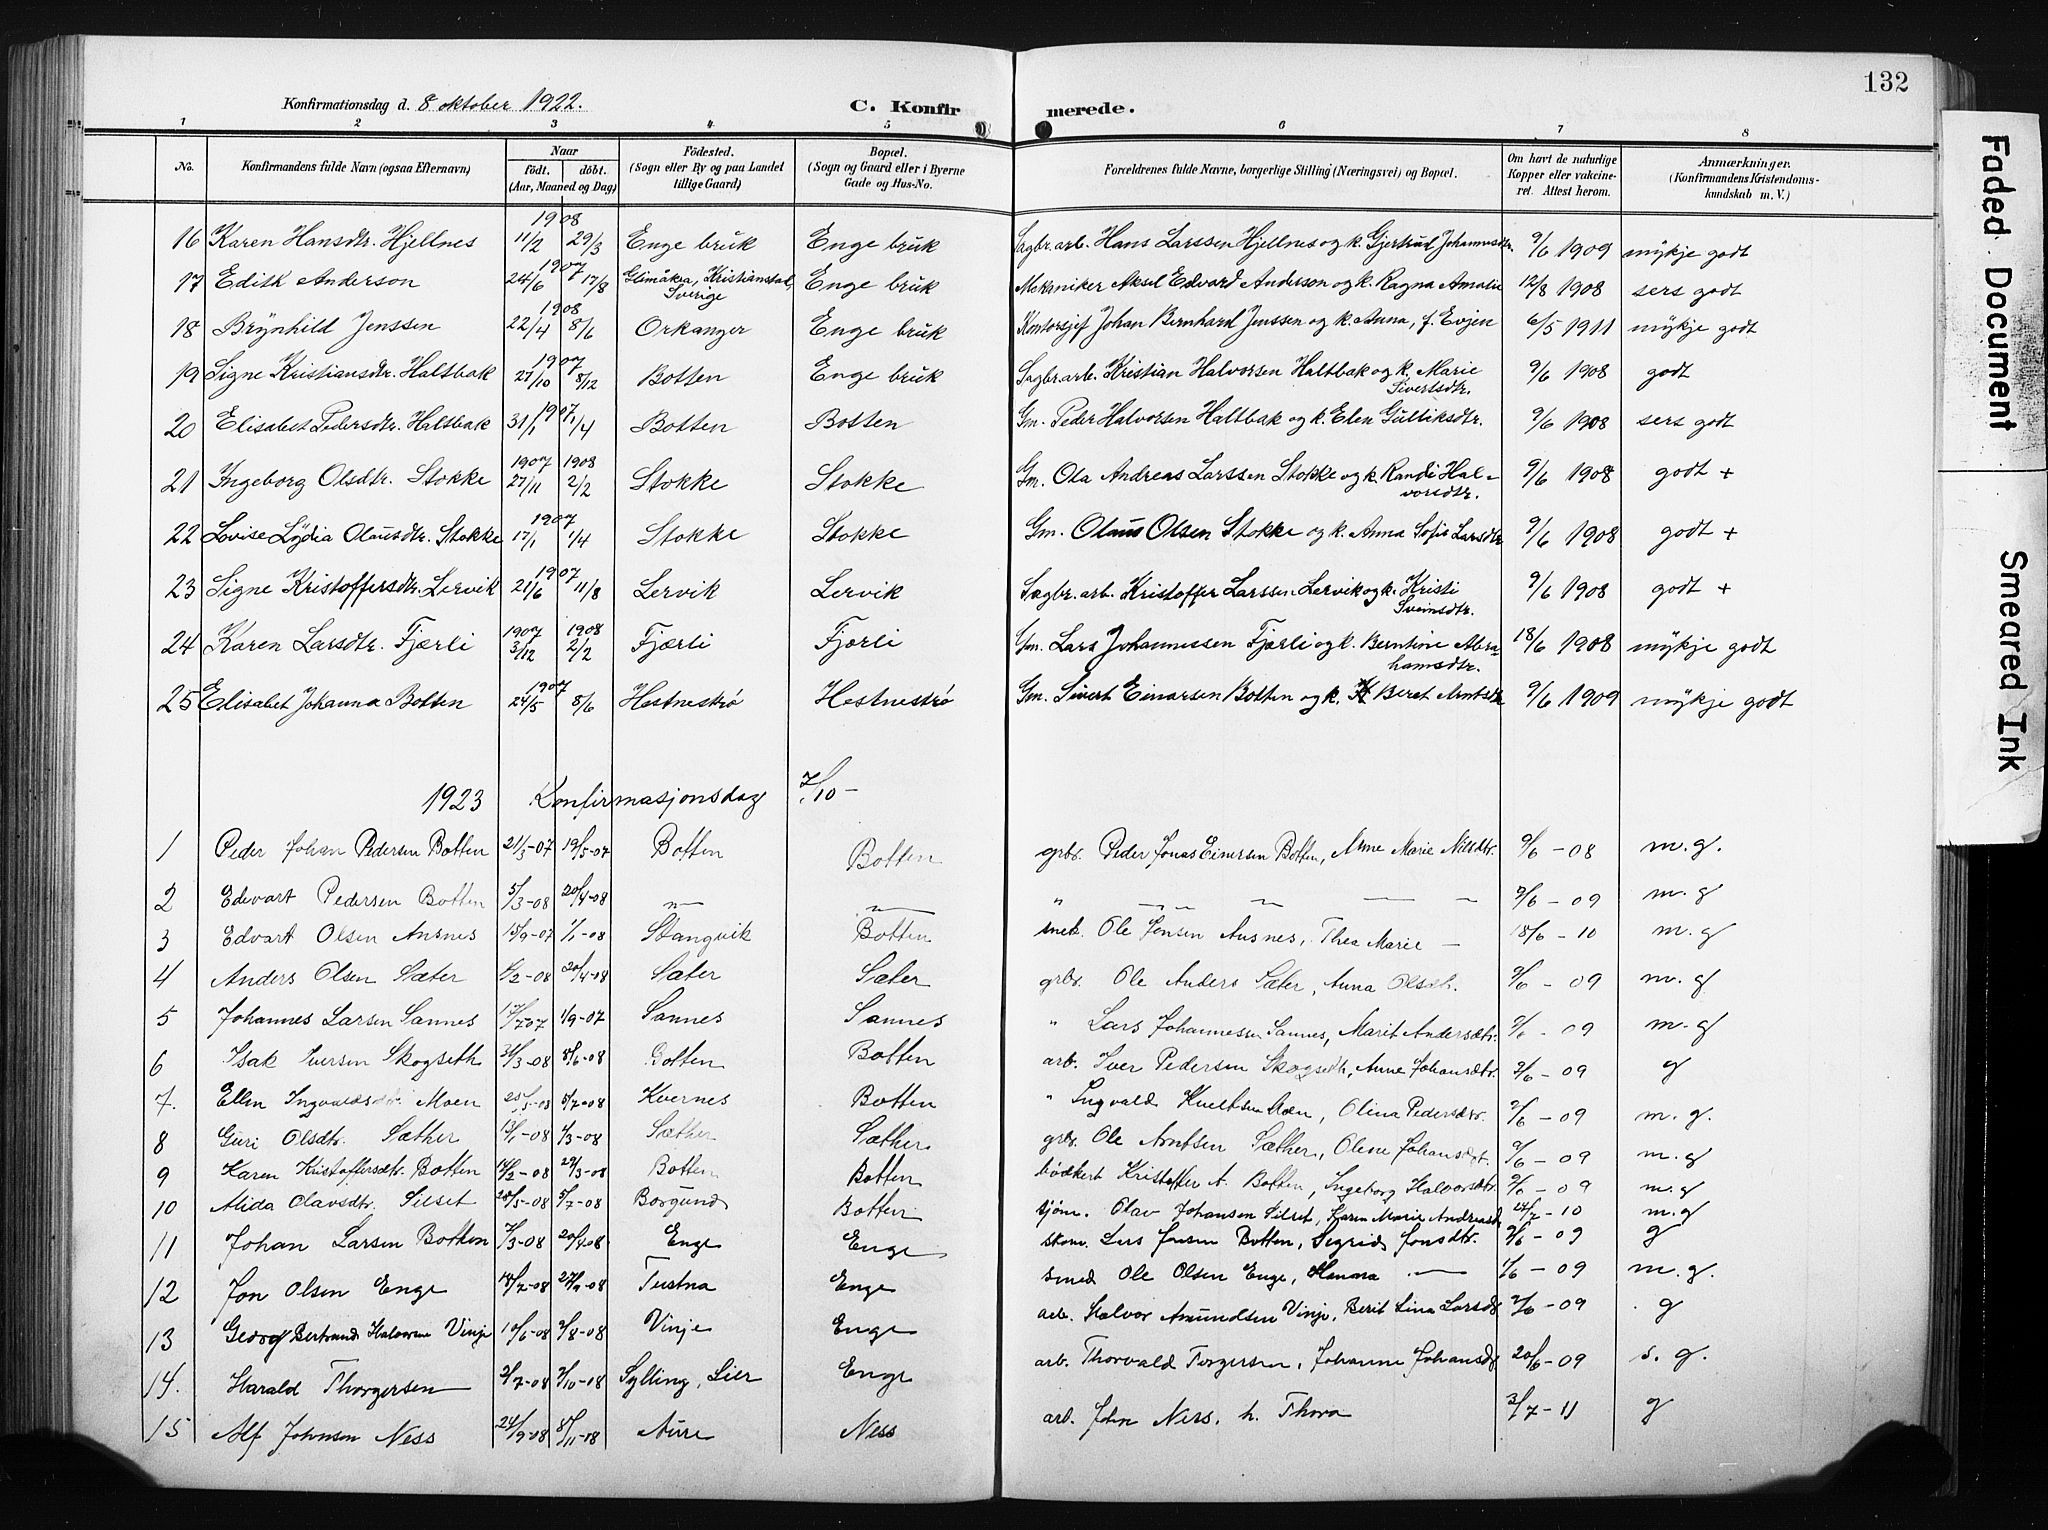 132
Konfirmationsdag d. 8 oktober 1922. C. Konfirmerede.
1 2 3 4 5 6 7 8
No. Konfirmandens fulde Navn (ogsaa Efternavn) Naar født. døbt. (Aar, Maaned og Dag) Fødested. (Sogn eller By og paa Landet tillige Gaard) Bopæl. (Sogn og Gaard eller i Byerne Gade og Hus-No. Forældrenes fulde Navne, borgerlige Stilling (Næringsvei) og Bopæl. Om havt de naturlige Kopper eller vaccineret. Attest herom. Anmærkninger. (Konfirmandens Kristendomskundskab m. V.)
16 Karen Hansdtr. Hjellnes 1908 11/2 29/3 Enge bruk Enge bruk Sagbr.arb. Hans Larssen Hjellnes og k. Gjertrud Johannesdtr. 9/6 1909 mykje godt
17 Edith Anderson 1907 24/6 17/8 Glimåkra, Kristianstad, Sverige Enge bruk Mekaniker Aksel Edvard Anderson og k. Ragna Amalie 12/8 1908 sers godt
18 Brynhild Jenssen 1908 22/4 8/6 Orkanger Enge bruk Kontorsjef Johan Bernhard Jenssen og k. Anna, f. Evjen 6/5 1911 mykje godt
19 Signe Kristiansdtr. Haltbak 1907 27/10 8/12 Botten Enge bruk Sagbr.arb. Kristian Halvorsen Haltbak og k. Marie Sivertsdtr. 9/6 1908 godt
20 Elisabet Pedersdtr. Haltbak 1907 31/1 1/4 Botten Botten Gm. Peder Halvorsen Haltbak og k. Elen Gulliksdtr. 9/6 1908 sers godt
21 Ingeborg Olsdtr. Stokke 1907 27/11 1908 2/2 Stokke Stokke Gm. Ola Andreas Larssen Stokke og k. Randi Halvorsdtr. 9/6 1908 godt +
22 Lovise Lydia Olausdtr. Stokke 1907 17/1 1/4 Stokke Stokke Gm. Olaus Olsen Stokke og k. Anna Sofie Larsdtr 9/6 1908 godt +
23 Signe Kristoffersdtr. Lervik 1907 21/6 11/8 Lervik Lervik Sagbr.arb. Kristoffer Larssen Lervik og k. Kristi Sveinsdtr. 9/6 1908 godt +
24 Karen Larsdtr. Fjærli 1907 3/12 1908 2/2 Fjærli Fjærli Gm. Lars Johannessen Fjærli og k. Berntine Abrahamsdtr. 18/6 1908 mykje godt
25 Elisabet Johanna Botten 1907 24/5 8/6 Hestnestrø Hestnestrø Gm. Sivert Einarsen Botten og k. Beret Arntsdtr 9/6 1909 mykje godt
1923 Konfirmasjonsdag 7/10 -
1 Peder Johan Pedersen Botten 21/3-07 19/5-07 Botten Botten grbr. Peder Jonas Einersen Botten, Anne Marie Nilsdtr. 9/6 - 08 m. g.
2 Edvart Pedersen Botten 5/3-08 20/4-08 —"— —"— " — " — " — — — 9/6 - 09 m. g
3 Edvart Olsen Ansnes 15/9-07 1/1-08 Stangvik Botten snek. Ole Jonsen Ausnes, Thea Marie — 18/6 - 10 m. g
4 Anders Olsen Sæter /2-08 20/4-08 Sæter Sæter grbr. Ole Anders Sæter, Anna Olsdtr. 9/6 - 09 m. g
5 Johannes Larsen Sannes 17/7 07 1/9-07 Sannes Sannes " Lars Johannessen Sannes, Marit Andersdtr. 9/6 - 09 m. g
6 Isak Iversen Skogseth 31/3-08 8/6-08 Botten Botten arb. Iver Pedersen Skogseth, Anne Johansdtr. 9/6 - 09 g
7. Ellen Ingvaldsdtr. Moen 25/5-08 5/7-08 Kvernes Botten " Ingvald Moen, Olina Pedersdtr. 9/6 - 09 m. g.
8 Guri Olsdtr. Sæther 13/1-08 /3-08 Sæther Sæther grbr. Ole Arntsen Sæther, Oline Johansdtr. 9/6 - 09 m. g
9 Karen Kristoffersdtr. Botten 14/2-08 29/3-08 Botten Botten bødkert Kristoffer A. Botten, Ingeborg Halvorsdtr. 9/6 - 09 m. g
10 Alida Olavsdtr. Silset 28/5-08 5/7-08 Borgund Botten sjøm. Olav Johansen Silset, Karen Marie Andreasd - 10 m. g
11 Johan Larsen Botten /3-08 20/4-08 Enge Enge skom. Lars Jonsen Botten, Sigrid Jonsdtr. 9/6 - 09 g
12 Jon Olsen Enge 18/7-08 Tustna Enge smed Ole Olsen Enge, Hanna — /6 - 09 m. g.
13 Georg Bertrand Halvorsen Vinje 10/6-08 /8-08 Vinje Enge arb. Halvor Amundsen Vinje, Berit Lina Larsd 9/6 - 09 g
14. Harald Thorgersen 2/7-08 /10-08 Sylling, Lier Enge arb. Thorvald Torgersen, Johanne Johansd 20/6 - 09 s. g.
15 Alf Johnsen Ness 24/9-08 8/11-08 Aure Ness arb. John Ness, h. Thora 3/7 - 11 g
Faded Document
Smeared Ink